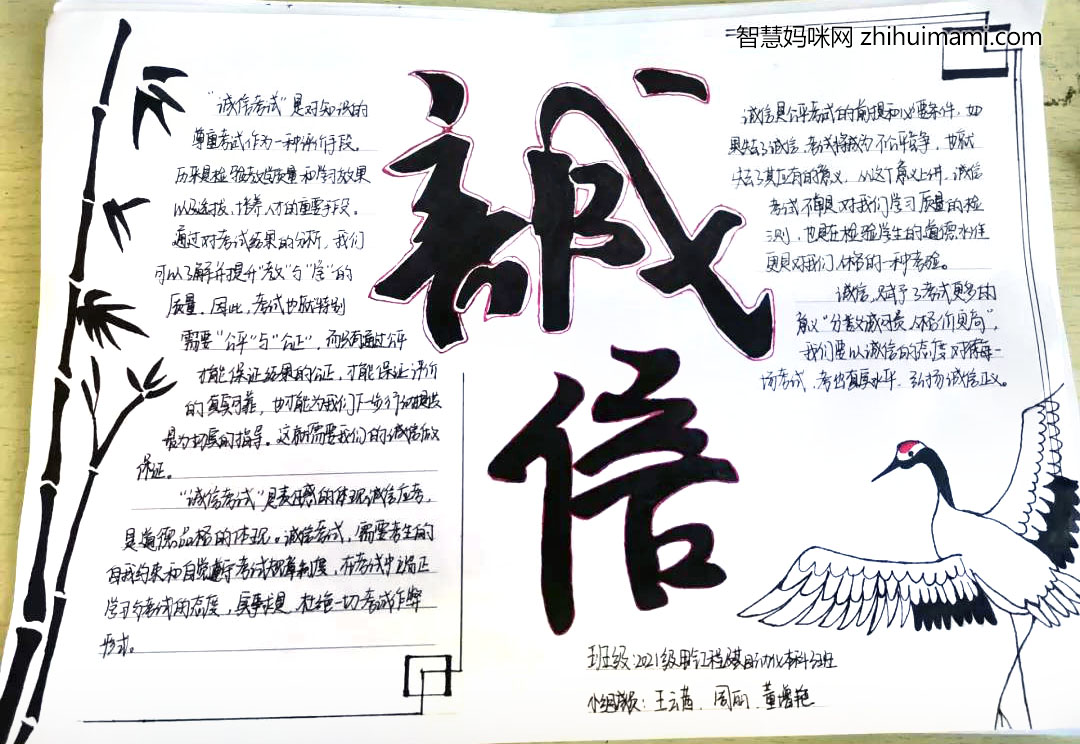 智慧妈咪网 zhihuimami.com
誠
信
"诚信考试"是对知识的
尊重考试作为一种评价手段。
历来是检验教学质量和学习效果
以及选拔、培养人才的重要手段。
通过对考试结果的分析，我们
可以了解并提升"教"与"学"的
质量。因此，考试也就特别
需要"公平"与"公正"，而只有通过公平
才能保证结果的公正，才能保证评价
的真实可靠，也才能为我们下一步行动提供
最为切实的指导。这就需要我们的诚信做
保证。
"诚信考试"是责任感的体现诚信应考，
是道德品格的体现。诚信考试，需要考生的
自我约束和自觉遵守考试规章制度，在考试中端正
学习与考试的态度，实事求是，杜绝一切考试作弊
形式。
诚信是公平考试的前提和必要条件，如
果失去了诚信，考试将成为不公平竞争，也就
失去了其应有的意义，从这个意义上讲，诚信
考试不单是对我们学习质量的检
测，也是在检验学生的道德水准
更是对我们人格的一种考验。
诚信，赋予了考试更多的
意义"分数诚可贵，人格价更高"，
我们要以诚信的态度对待每一
场考试，考出真实水平，弘扬诚信正义。
班级：2021级电气工程及其自动化本科2班
小组成员：王云茜、周丽、董增艳